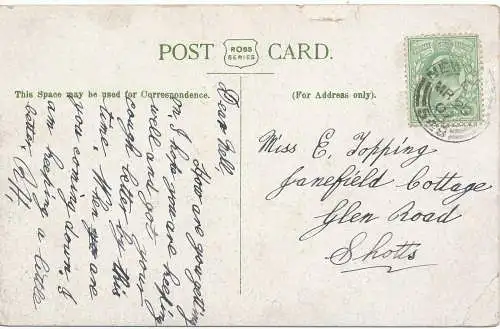 POST CARD.
ROSS
SERIES
This Space may be used for Correspondence.
(For Address only).
Dear Nell,
How are you getting
on. I hope you are keeping
well and got your
cough better by this
time. When are
you coming down. I
am keeping a little
better.
Miss E. Topping
Janefield Cottage
Glen Road
Shotts